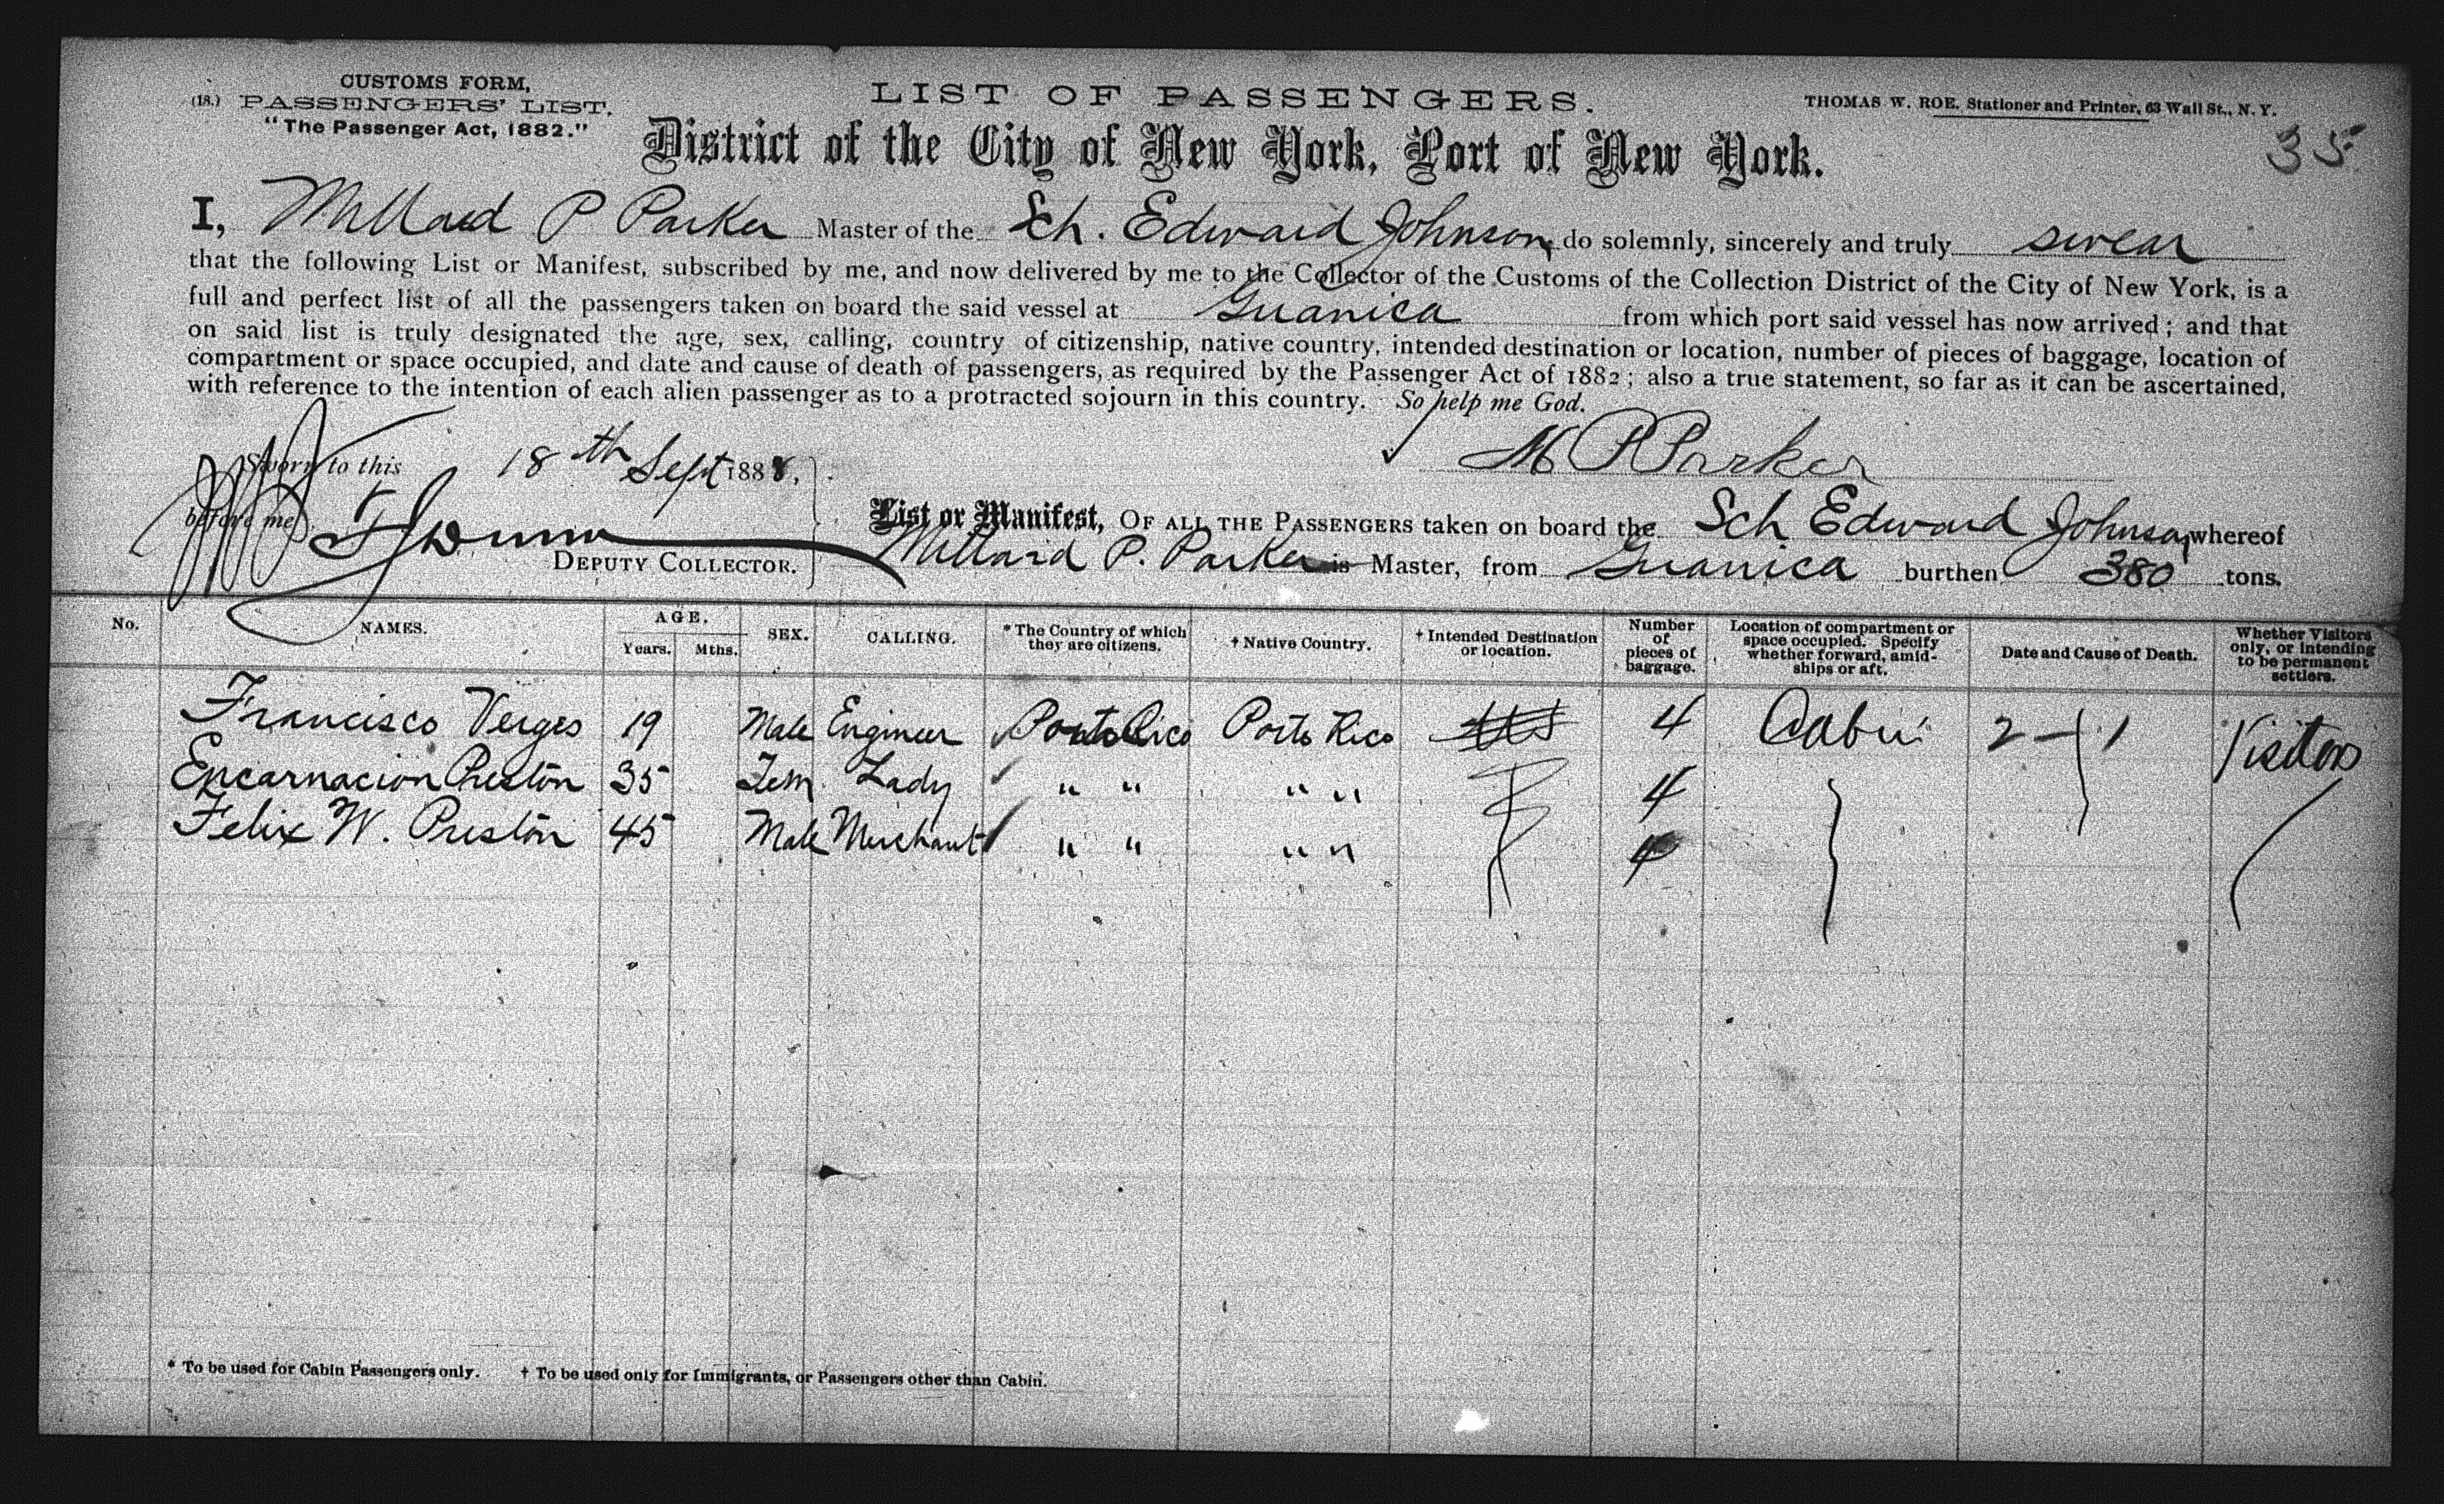 CUSTOMS FORM,
(18.) PASSENGERS' LIST.
"The Passenger Act, 1882."
LIST OF PASSENGERS.
THOMAS W. ROE. Stationer and Printer, 63 Wall St., N. Y.
35
District of the City of New York, Port of New York.
I, Millard P Parker Master of the Sch. Edward Johnson, do solemnly, sincerely and truly swear
that the following List or Manifest, subscribed by me, and now delivered by me to the Collector of the Customs of the Collection District of the City of New York, is a
full and perfect list of all the passengers taken on board the said vessel at Guanica from which port said vessel has now arrived; and that
on said list is truly designated the age, sex, calling, country of citizenship, native country, intended destination or location, number of pieces of baggage, location of
compartment or space occupied, and date and cause of death of passengers, as required by the Passenger Act of 1882; also a true statement, so far as it can be ascertained,
with reference to the intention of each alien passenger as to a protracted sojourn in this country. So help me God.
Sworn to this 18th Sept 1888,
M P Parker
before me,
DEPUTY COLLECTOR.
List or Manifest, OF ALL THE PASSENGERS taken on board the Sch Edward Johnson, whereof
Millard P. Parker is Master, from Guanica burthen 380 tons.
No. NAMES. AGE. Years. Mths. SEX. CALLING. * The Country of which they are citizens. † Native Country. † Intended Destination or location. Number of pieces of baggage. Location of compartment or space occupied. Specify whether forward, amidships or aft. Date and Cause of Death. Whether Visitors only, or intending to be permanent settlers.
Francisco Verges 19 Male Engineer Porto Rico Porto Rico 4 Cabin 2 - 1 Visitors
Encarnacion Preston 35 Fem Lady " " " " 4
Felix W. Preston 45 Male Merchant " " " " 4
* To be used for Cabin Passengers only. † To be used only for Immigrants, or Passengers other than Cabin.